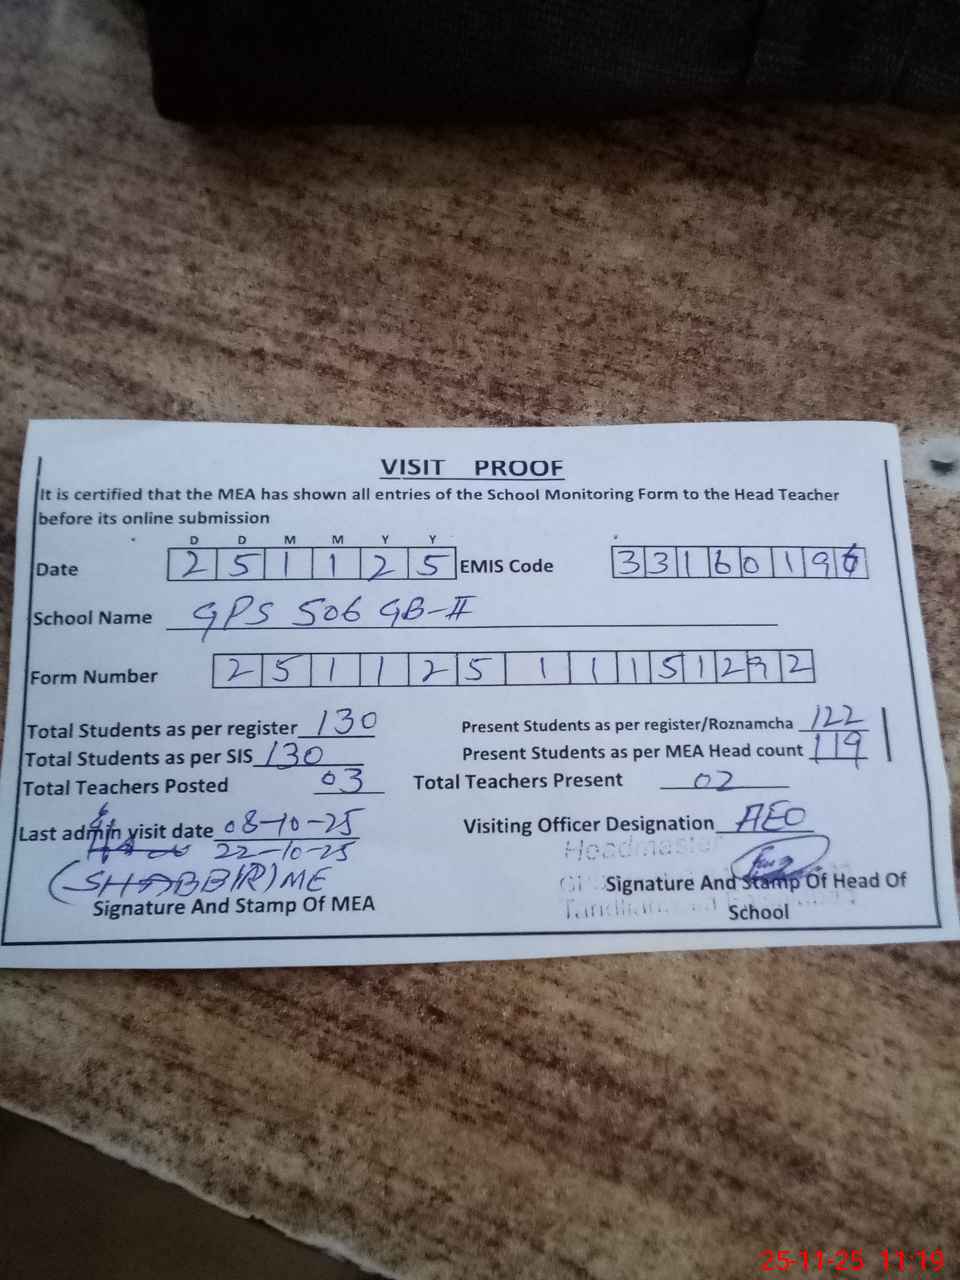 VISIT PROOF
It is certified that the MEA has shown all entries of the School Monitoring Form to the Head Teacher
before its online submission
D D M M Y Y
Date 2 5 1 1 2 5 EMIS Code 3 3 1 6 0 1 9
School Name GPS 506 GB-II
Form Number 2 5 1 1 2 5 1 1 1 5 1 2 2
Total Students as per register 130 Present Students as per register/Roznamcha 122
Total Students as per SIS 130 Present Students as per MEA Head count 119
Total Teachers Posted 03 Total Teachers Present 02
Last admin visit date 08-10-25 Visiting Officer Designation AEO
22-10-25
Headmaster
(SHABBIR) ME
Signature And Stamp Of MEA Signature And Stamp Of Head Of
School
25-11-25 11:19